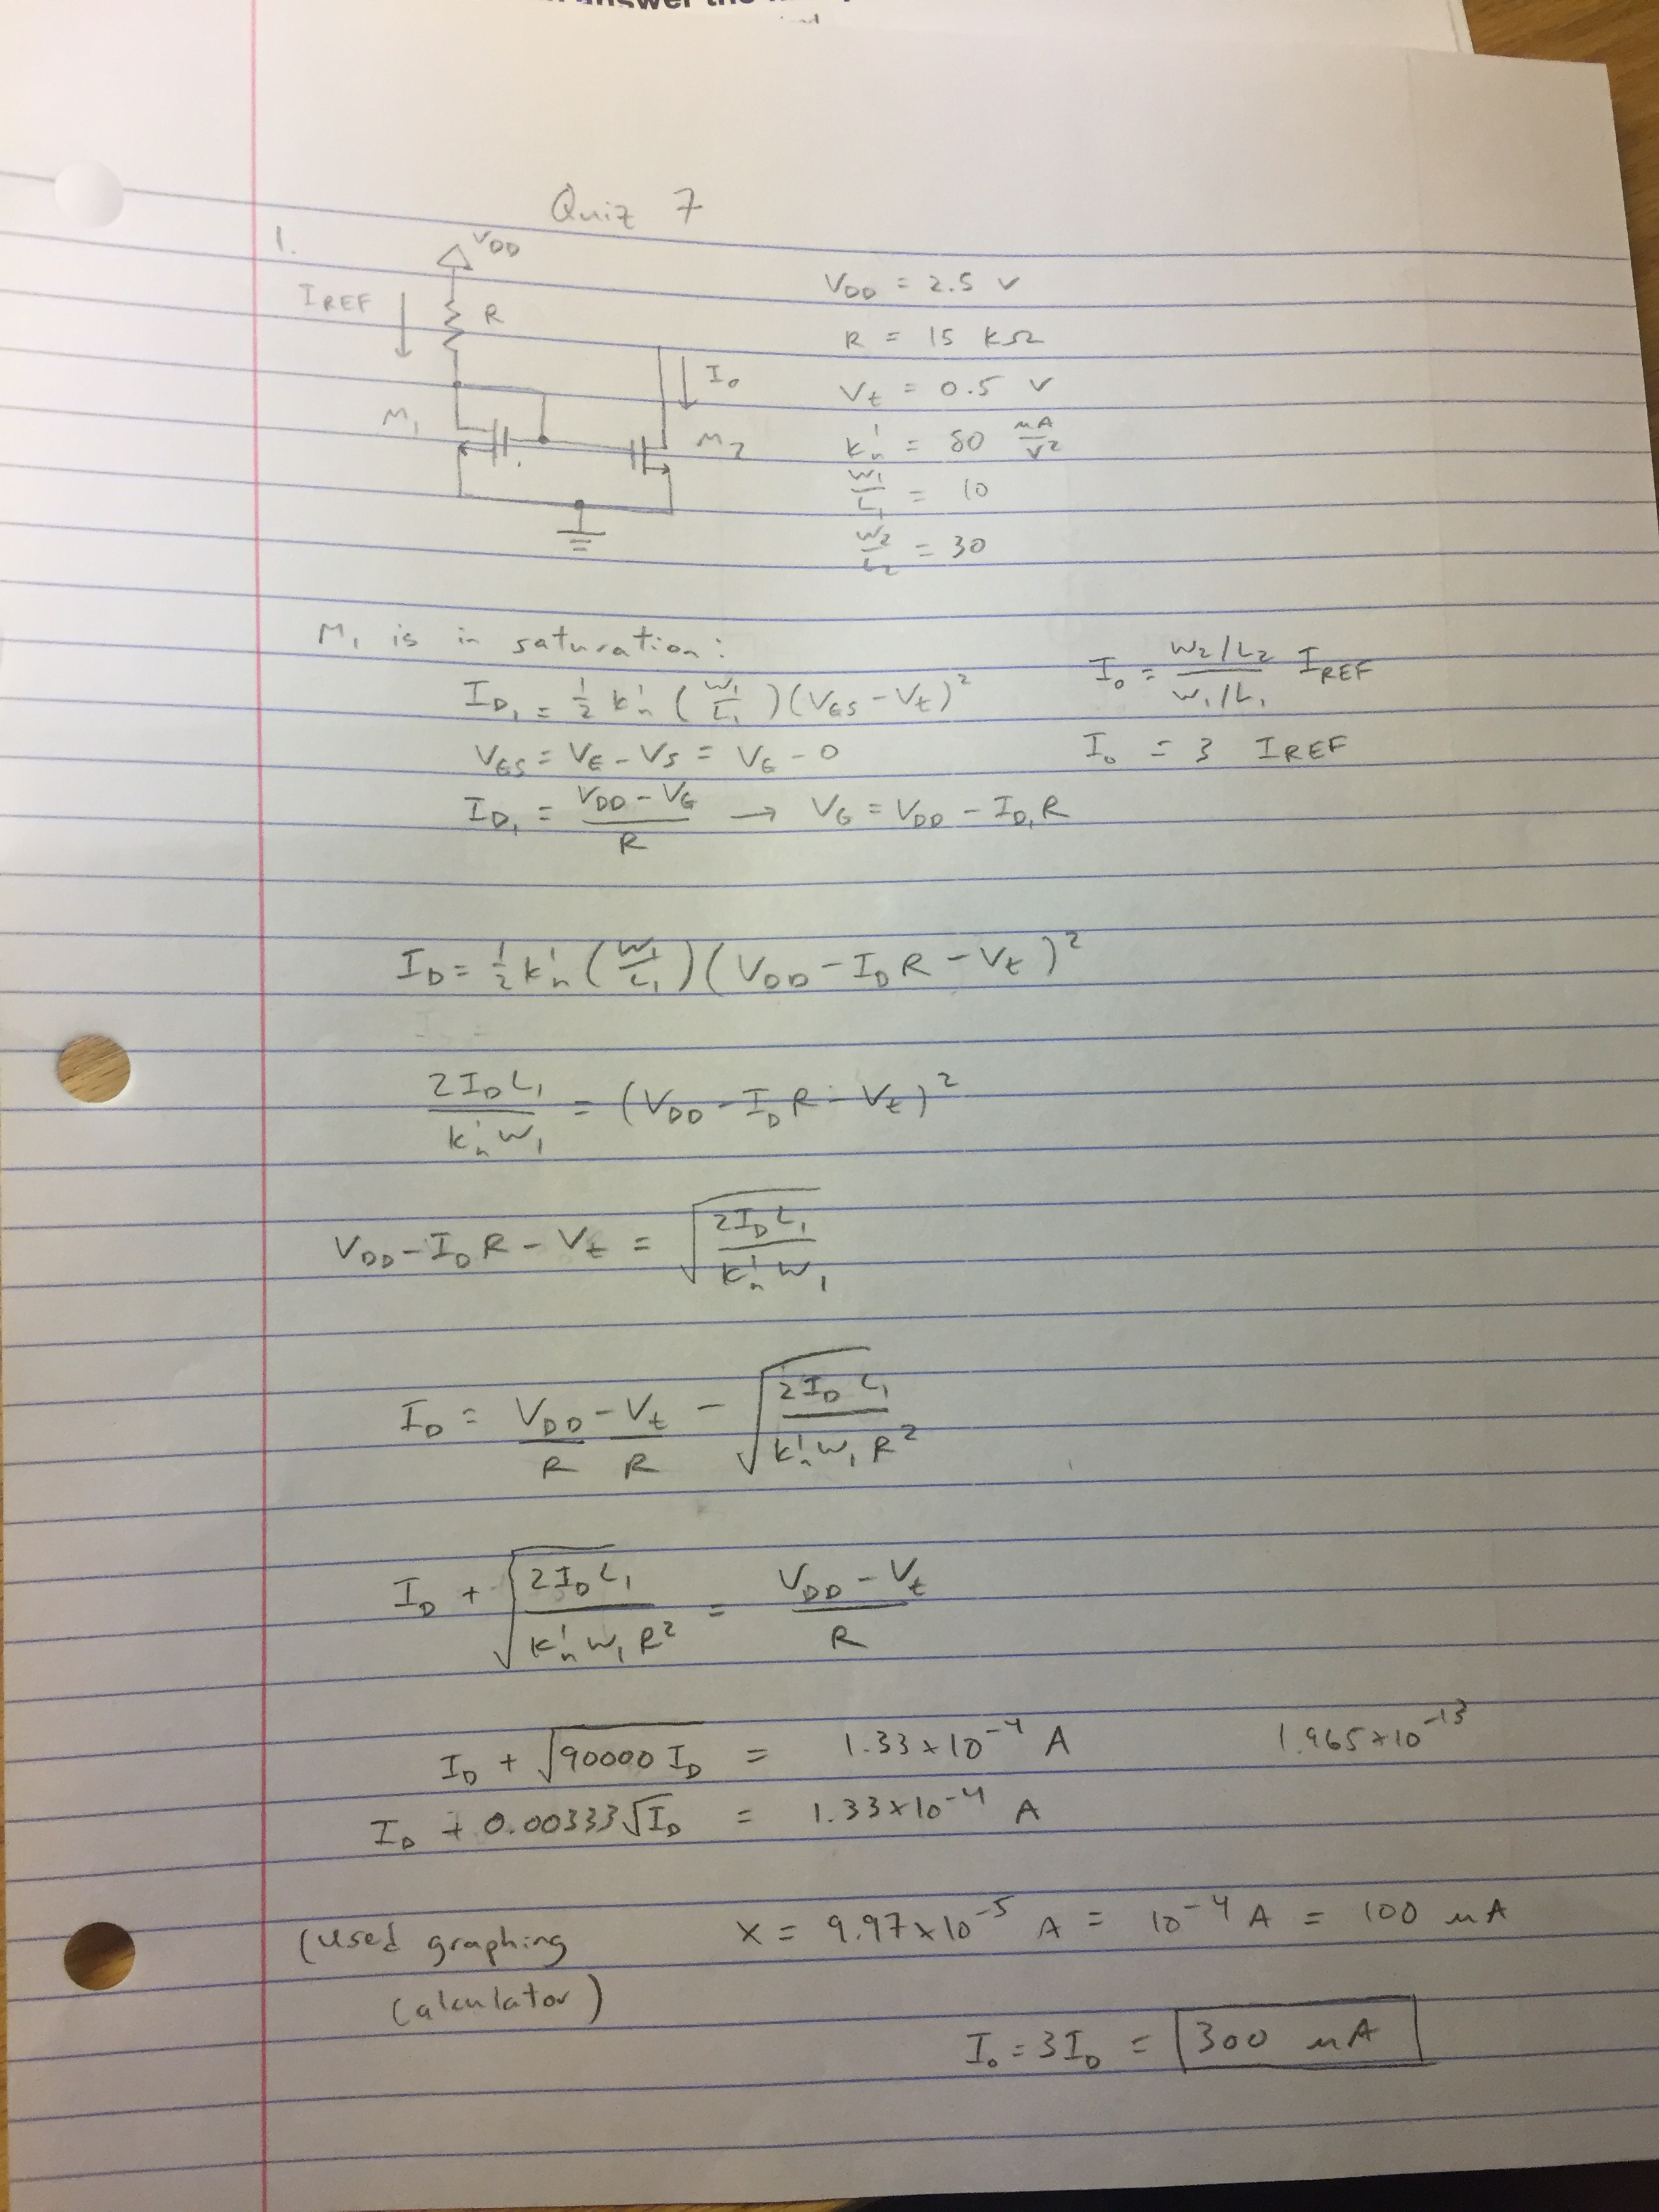 answer the
Quiz 7
1.
VDD
IREF
R
I₀
M₁
M₂
VDD = 2.5 V
R = 15 kΩ
Vt = 0.5 V
k'n = 80 μA/V²
W₁/L₁ = 10
W₂/L₂ = 30
M₁ is in saturation:
ID₁ = 1/2 k'n (W₁/L₁)(VGS - Vt)²
VGS = VG - VS = VG - 0
ID₁ = (VDD - VG)/R → VG = VDD - ID₁R
I₀ = (W₂/L₂)/(W₁/L₁) IREF
I₀ = 3 IREF
ID = 1/2 k'n (W₁/L₁)(VDD - IDR - Vt)²
2IDL₁/k'nW₁ = (VDD - IDR - Vt)²
VDD - IDR - Vt = √(2IDL₁/k'nW₁)
ID = VDD/R - Vt/R - √(2IDL₁/k'nW₁R²)
ID + √(2IDL₁/k'nW₁R²) = (VDD - Vt)/R
ID + √(90000 ID) = 1.33×10⁻⁴ A
1.965×10⁻¹³
ID + 0.00333√ID = 1.33×10⁻⁴ A
(used graphing
calculator)
X = 9.97×10⁻⁵ A = 10⁻⁴ A = 100 μA
I₀ = 3ID = 300 μA